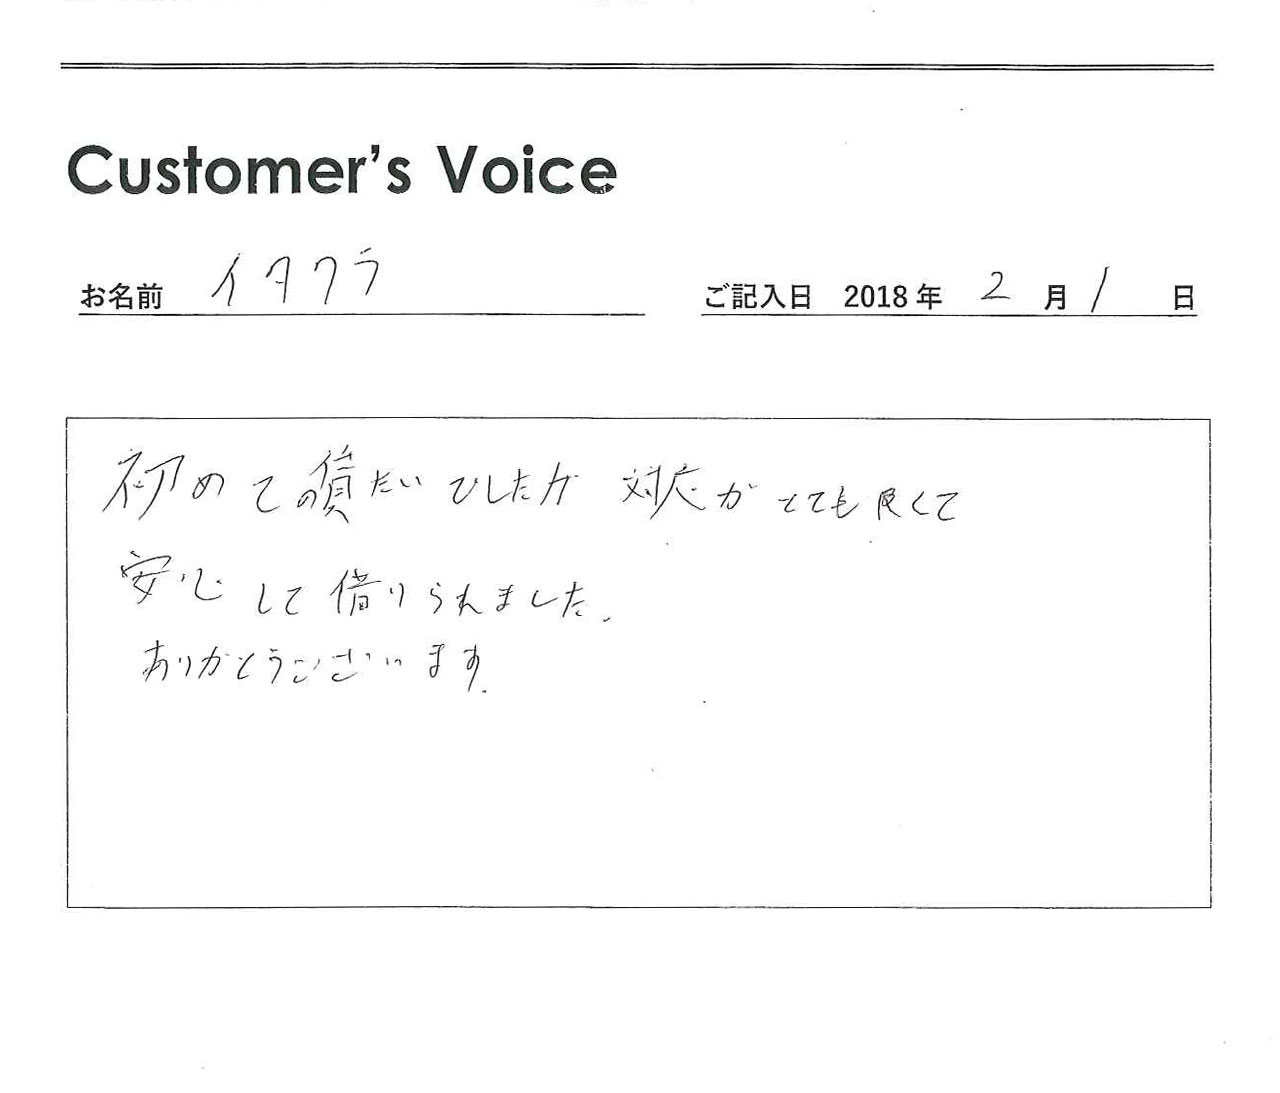 Customer's Voice
お名前 イタクラ ご記入日 2018年 2月 1日
初めての賃だいでしたが 対応がとても良くて
安心して借りられました。
ありがとうございます。